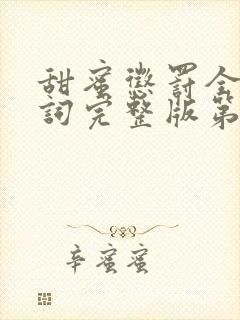 甜蜜懲罰全
詞完整版第
辛蜜蜜